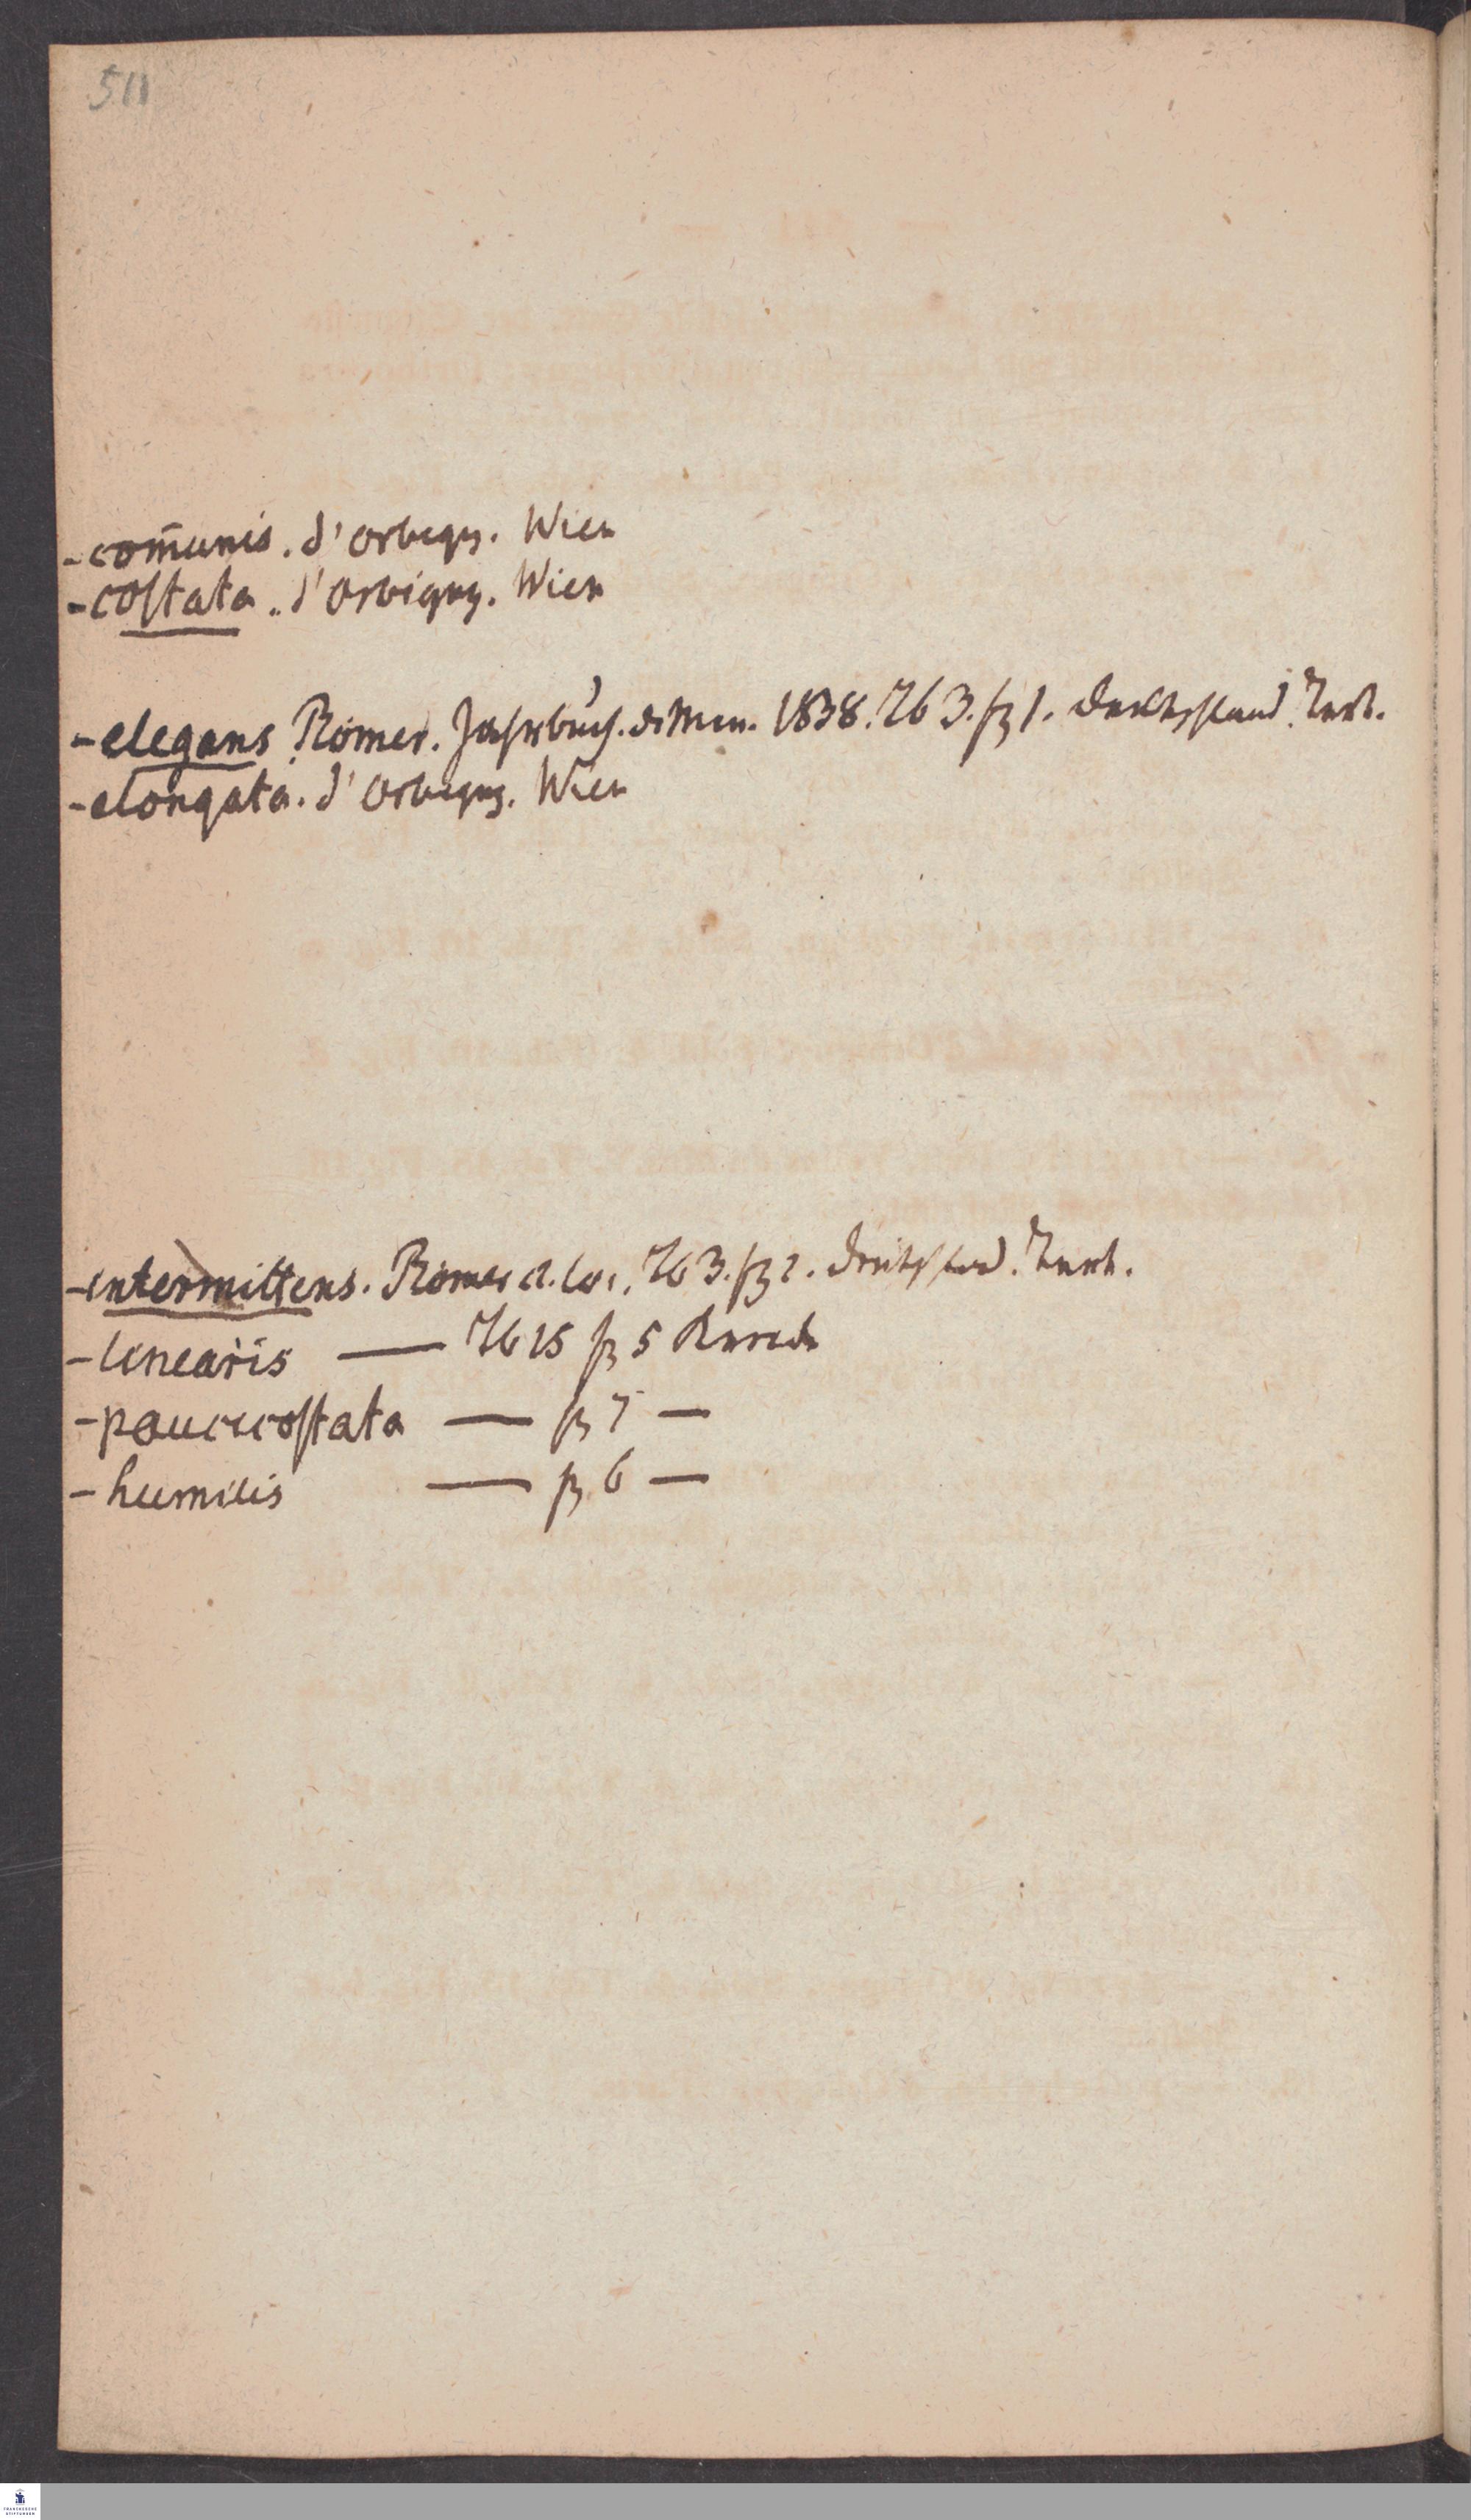 511
- com̄unis. d'Orbigny. Wien
- costata. d'Orbigny. Wien
- elegans Römer. Jahrbuch. d. Min. 1838. Tb 3. fg 1. Deutschland. Tert.
- elongata. d'Orbigny. Wien
- intermittens. Römer a. loc. Tb 3. fg 2. Deutschland. Tert.
- linearis — Tb 15 fg 5 Kreide
- paucicostata — fg 7 —
- humilis — fg 6 —
FRANCKESCHE
STIFTUNGEN